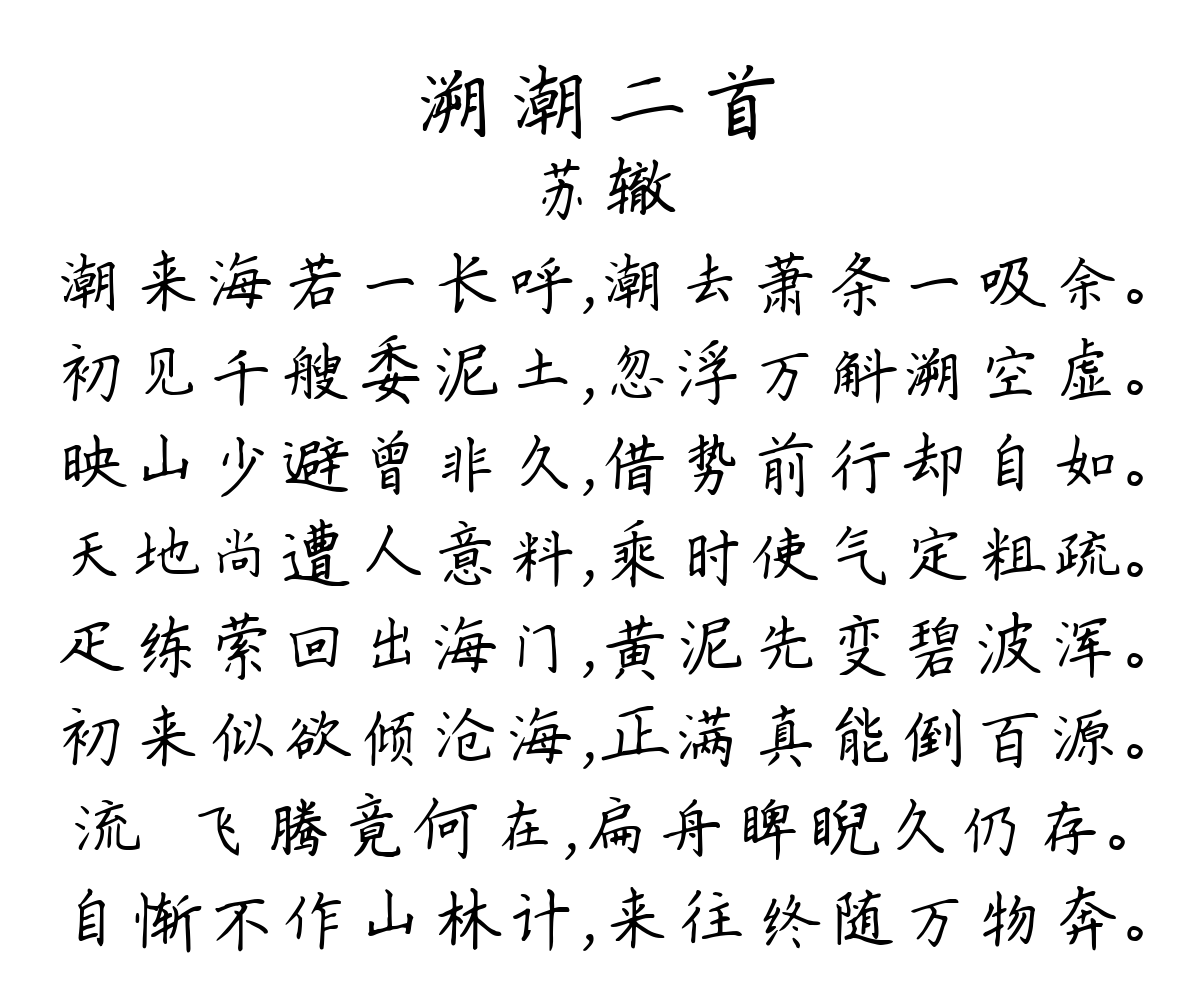 溯潮二首
苏辙
潮来海若一长呼,潮去萧条一吸余。
初见千艘委泥土,忽浮万斛溯空虚。
映山少避曾非久,借势前行却自如。
天地尚遭人意料,乘时使气定粗疏。
疋练萦回出海门,黄泥先变碧波浑。
初来似欲倾沧海,正满真能倒百源。
流 飞腾竟何在,扁舟睥睨久仍存。
自惭不作山林计,来往终随万物奔。